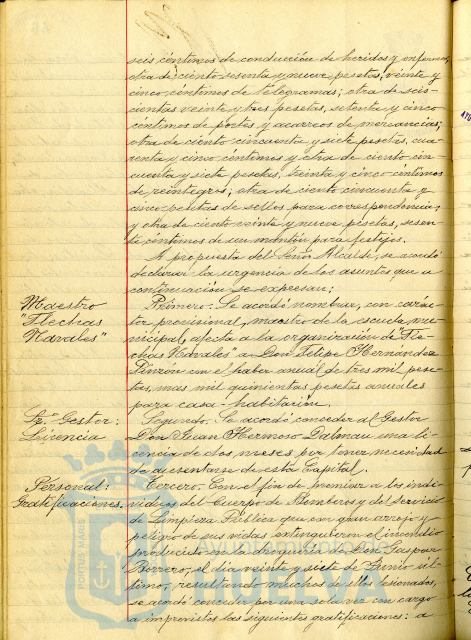 seis céntimos de conducción de heridos y enfermos;
otra de ciento sesenta y nueve pesetas, veinte y
cinco céntimos de telegramas; otra de seis-
cientas veinte y tres pesetas, setenta y cinco
céntimos de portes y acarreos de mercancías;
otra de ciento cincuenta y siete pesetas, cua-
renta y cinco céntimos y otra de ciento cin-
cuenta y siete pesetas, treinta y cinco céntimos
de reintegros; otra de ciento cincuenta y
cinco pesetas de sellos para correspondencia;
y otra de ciento veinte y nueve pesetas, sesen-
ta céntimos de un mantón para festejos.
A propuesta del Señor Alcalde, se acordó
declarar la urgencia de los asuntos que a
continuación se expresan:
Maestro
"Flechas
Navales"
Primero: Se acordó nombrar, con carác-
ter provisional, maestro de la escuela mu-
nicipal, afecta a la organización de "Fle-
chas Navales" a Don Felipe Hernández
Pinzón con el haber anual de tres mil pese-
tas, mas mil quinientas pesetas anuales
para casa-habitación.
Sr. Gestor:
Licencia
Segundo. Se acordó conceder al Gestor
Don Juan Hermoso Dalmau una li-
cencia de dos meses por tener necesidad
de ausentarse de esta Capital.
Personal:
Gratificaciones.
Tercero. Con el fin de premiar a los indi-
viduos del Cuerpo de Bomberos y del Servicio
de Limpieza Pública que con gran arrojo y
peligro de sus vidas extinguieron el incendio
producido en la droguería de Don Gaspar
Borrero, el día veinte y siete de Junio úl-
timo, resultando muchos de ellos lesionados,
se acordó conceder por una sola vez con cargo
a imprevistos las siguientes gratificaciones: a
Ayuntamiento de
HUELVA
PORTUS MARIS